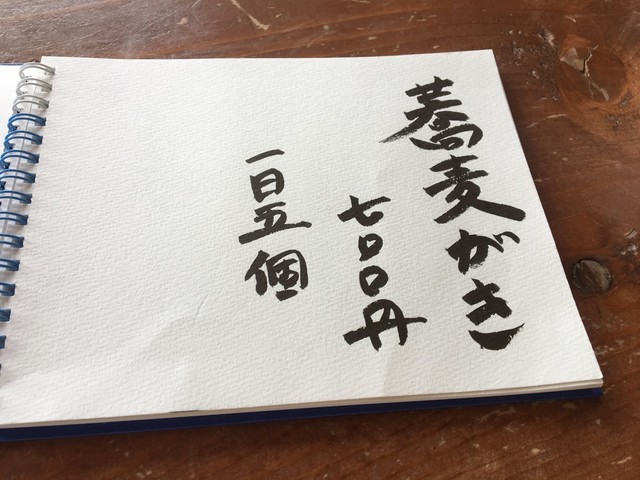 蕎麦がき
七〇〇円
一日五個